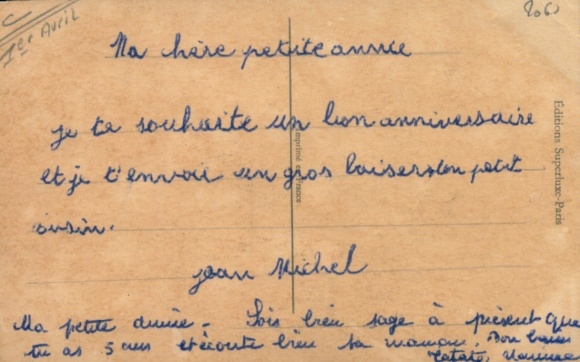 1er Avril
Ma hère petite année
je te souhaite un bon anniversaire
et je t'envoie un gros baiser ton petit
cousin.
jean Michel
Ma petite année - Sois bien sage à présent que
tu as 5 ans et écoute bien ta maman. Bon baiser
Imprimé France
Éditions Superluxe-Paris